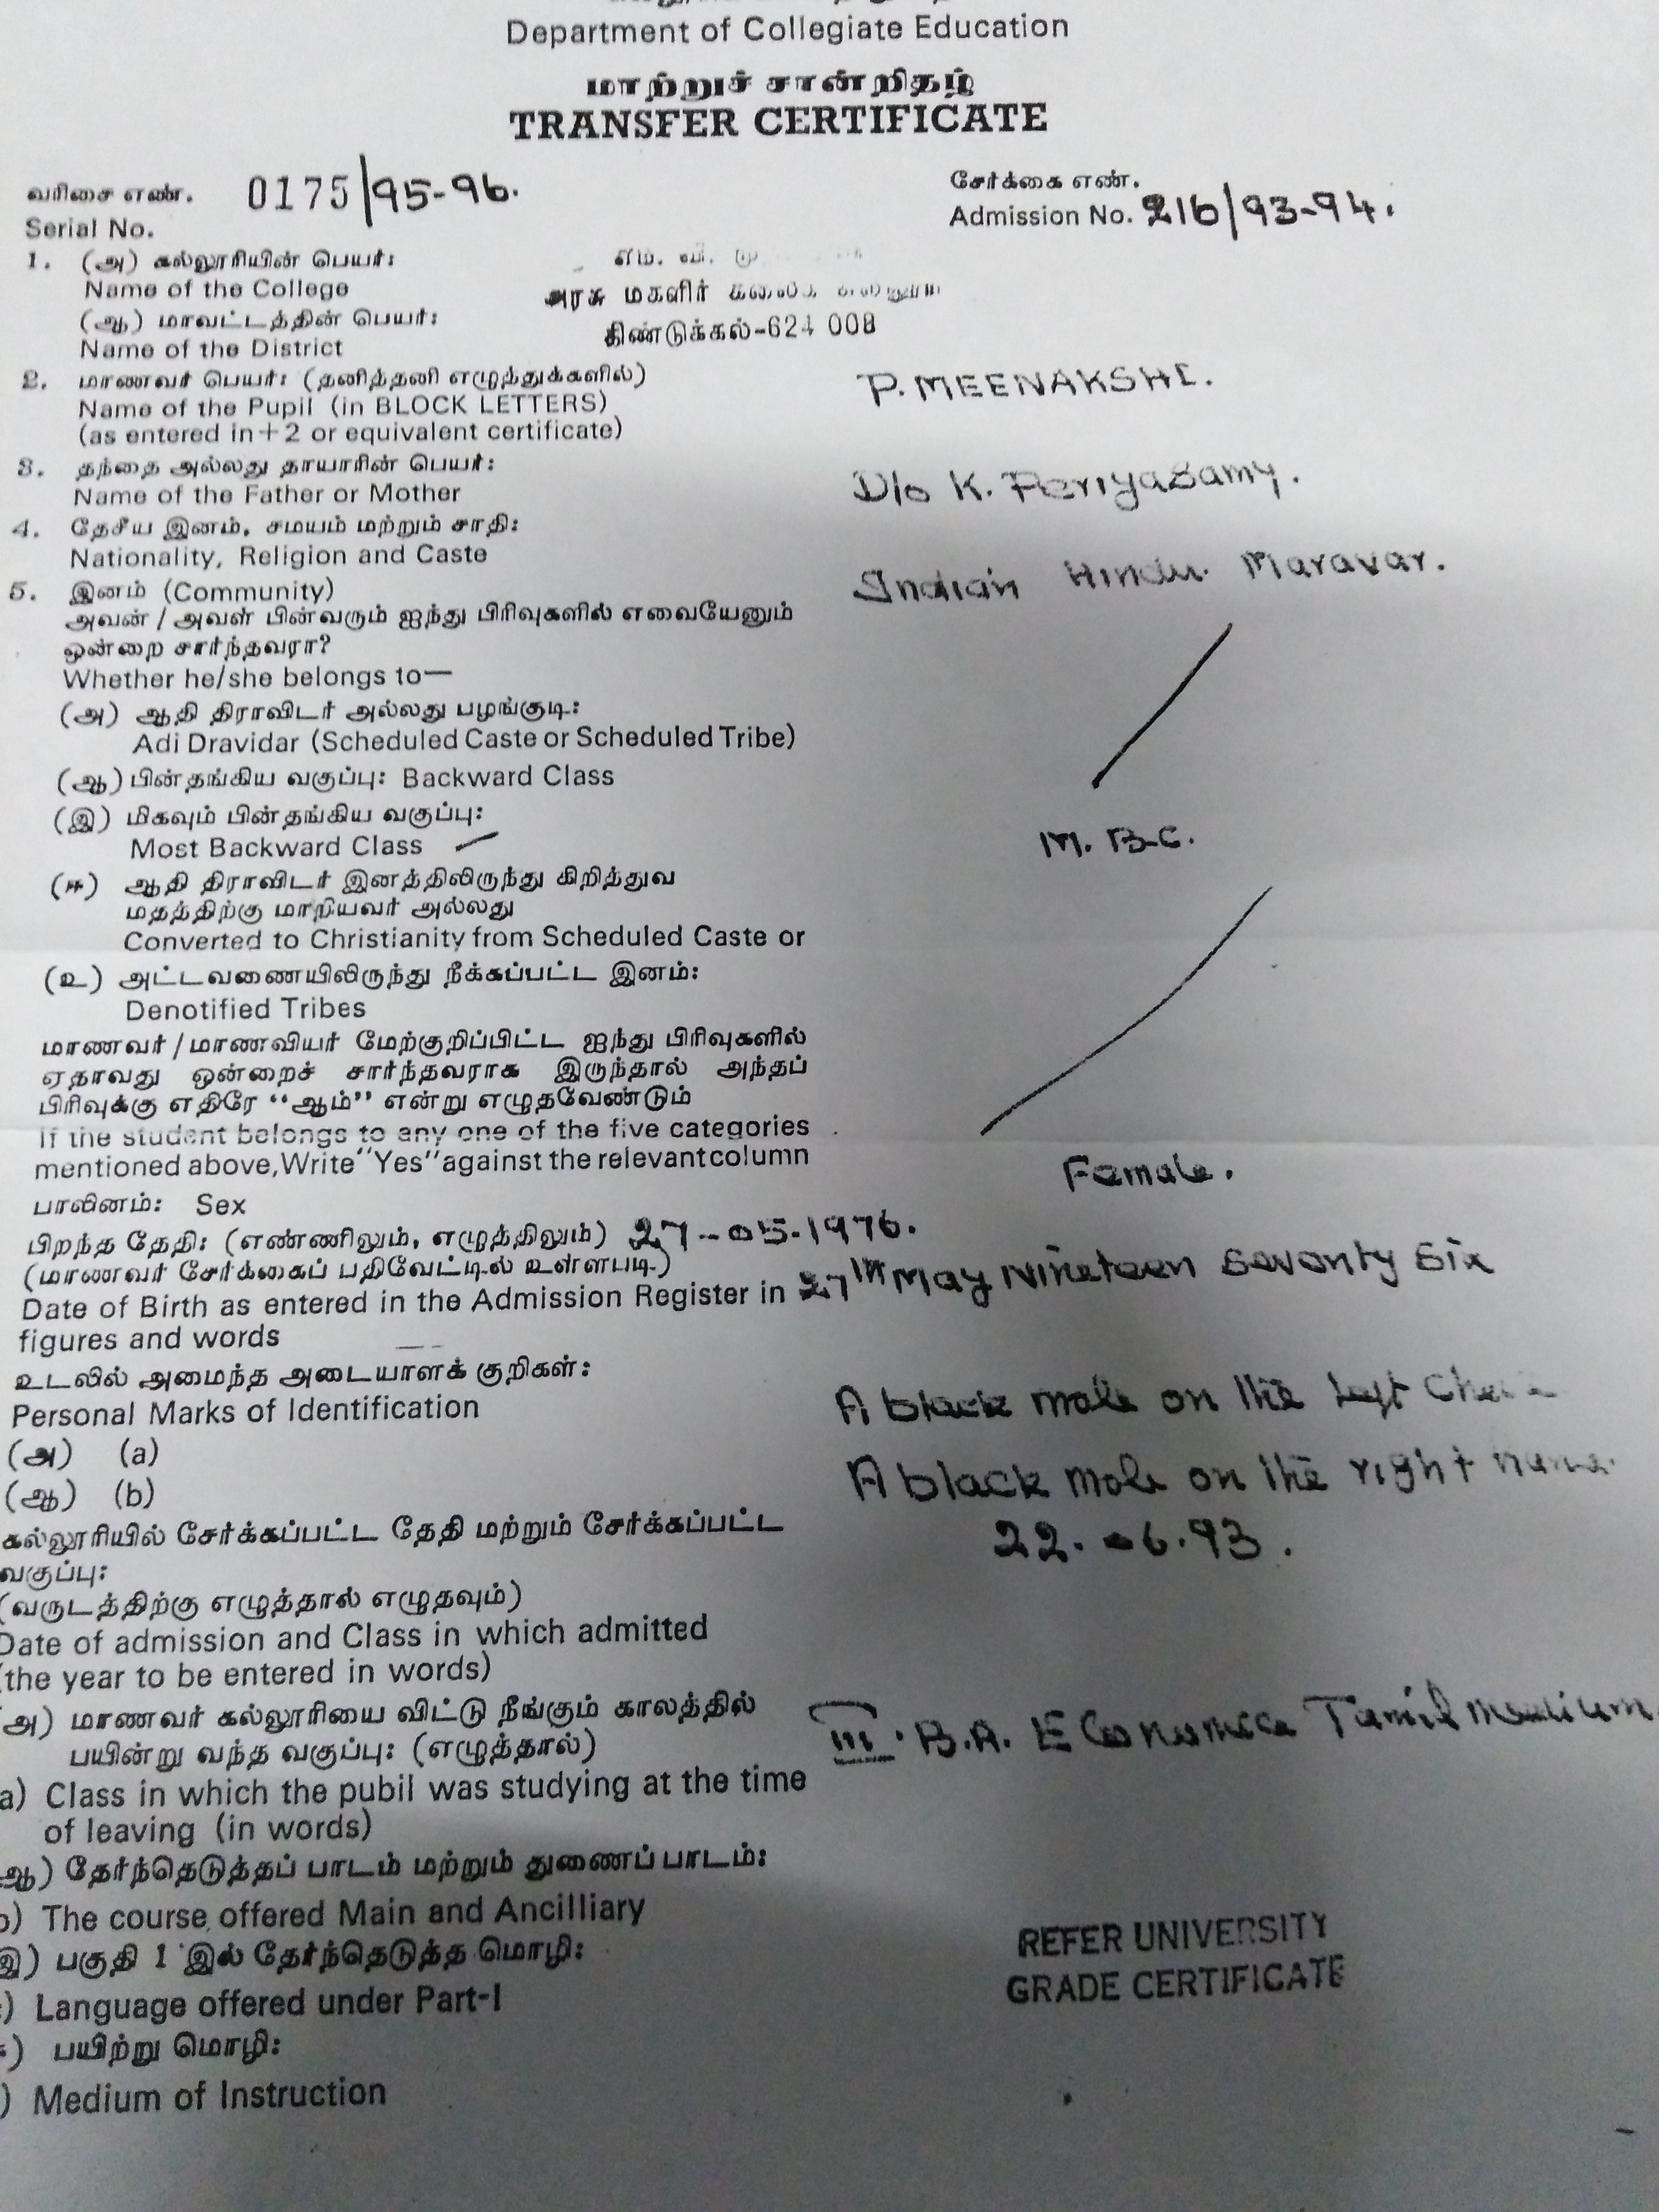 Department of Collegiate Education
மாற்றுச் சான்றிதழ்
TRANSFER CERTIFICATE
வரிசை எண். 0175/95-96.
Serial No.
சேர்க்கை எண்.
Admission No. 216/93-94.
1. (அ) கல்லூரியின் பெயர்: எம். வி.
Name of the College அரசு மகளிர்
(ஆ) மாவட்டத்தின் பெயர்: திண்டுக்கல்-624 008
Name of the District
2. மாணவர் பெயர்: (தனித்தனி எழுத்துக்களில்) P. MEENAKSHI.
Name of the Pupil (in BLOCK LETTERS)
(as entered in +2 or equivalent certificate)
3. தந்தை அல்லது தாயாரின் பெயர்: D/o K. Periyasamy.
Name of the Father or Mother
4. தேசீய இனம், சமயம் மற்றும் சாதி:
Nationality, Religion and Caste Indian Hindu Maravar.
5. இனம் (Community)
அவன் / அவள் பின்வரும் ஐந்து பிரிவுகளில் எவையேனும்
ஒன்றை சார்ந்தவரா?
Whether he/she belongs to—
(அ) ஆதி திராவிடர் அல்லது பழங்குடி:
Adi Dravidar (Scheduled Caste or Scheduled Tribe)
(ஆ) பின்தங்கிய வகுப்பு: Backward Class
(இ) மிகவும் பின்தங்கிய வகுப்பு:
Most Backward Class M. B.C.
(ஈ) ஆதி திராவிடர் இனத்திலிருந்து கிறித்துவ
மதத்திற்கு மாறியவர் அல்லது
Converted to Christianity from Scheduled Caste or
(உ) அட்டவணையிலிருந்து நீக்கப்பட்ட இனம்:
Denotified Tribes
மாணவர் / மாணவியர் மேற்குறிப்பிட்ட ஐந்து பிரிவுகளில்
ஏதாவது ஒன்றைச் சார்ந்தவராக இருந்தால் அந்தப்
பிரிவுக்கு எதிரே “ஆம்” என்று எழுதவேண்டும்
If the student belongs to any one of the five categories
mentioned above, Write "Yes" against the relevant column
பாலினம்: Sex Female.
பிறந்த தேதி: (எண்ணிலும், எழுத்திலும்) 27-05-1976.
(மாணவர் சேர்க்கைப் பதிவேட்டில் உள்ளபடி)
Date of Birth as entered in the Admission Register in 27th May Nineteen Seventy Six
figures and words
உடலில் அமைந்த அடையாளக் குறிகள்:
Personal Marks of Identification A black mole on the left
(அ) (a)
(ஆ) (b) A black mole on the right
கல்லூரியில் சேர்க்கப்பட்ட தேதி மற்றும் சேர்க்கப்பட்ட 22.06.93.
வகுப்பு:
(வருடத்திற்கு எழுத்தால் எழுதவும்)
Date of admission and Class in which admitted
(the year to be entered in words)
அ) மாணவர் கல்லூரியை விட்டு நீங்கும் காலத்தில்
பயின்று வந்த வகுப்பு: (எழுத்தால்) III. B.A. Economics Tamil Medium.
a) Class in which the pubil was studying at the time
of leaving (in words)
ஆ) தேர்ந்தெடுத்தப் பாடம் மற்றும் துணைப் பாடம்:
b) The course offered Main and Ancilliary
இ) பகுதி 1 இல் தேர்ந்தெடுத்த மொழி:
) Language offered under Part-I
) பயிற்று மொழி:
) Medium of Instruction
REFER UNIVERSITY
GRADE CERTIFICATE